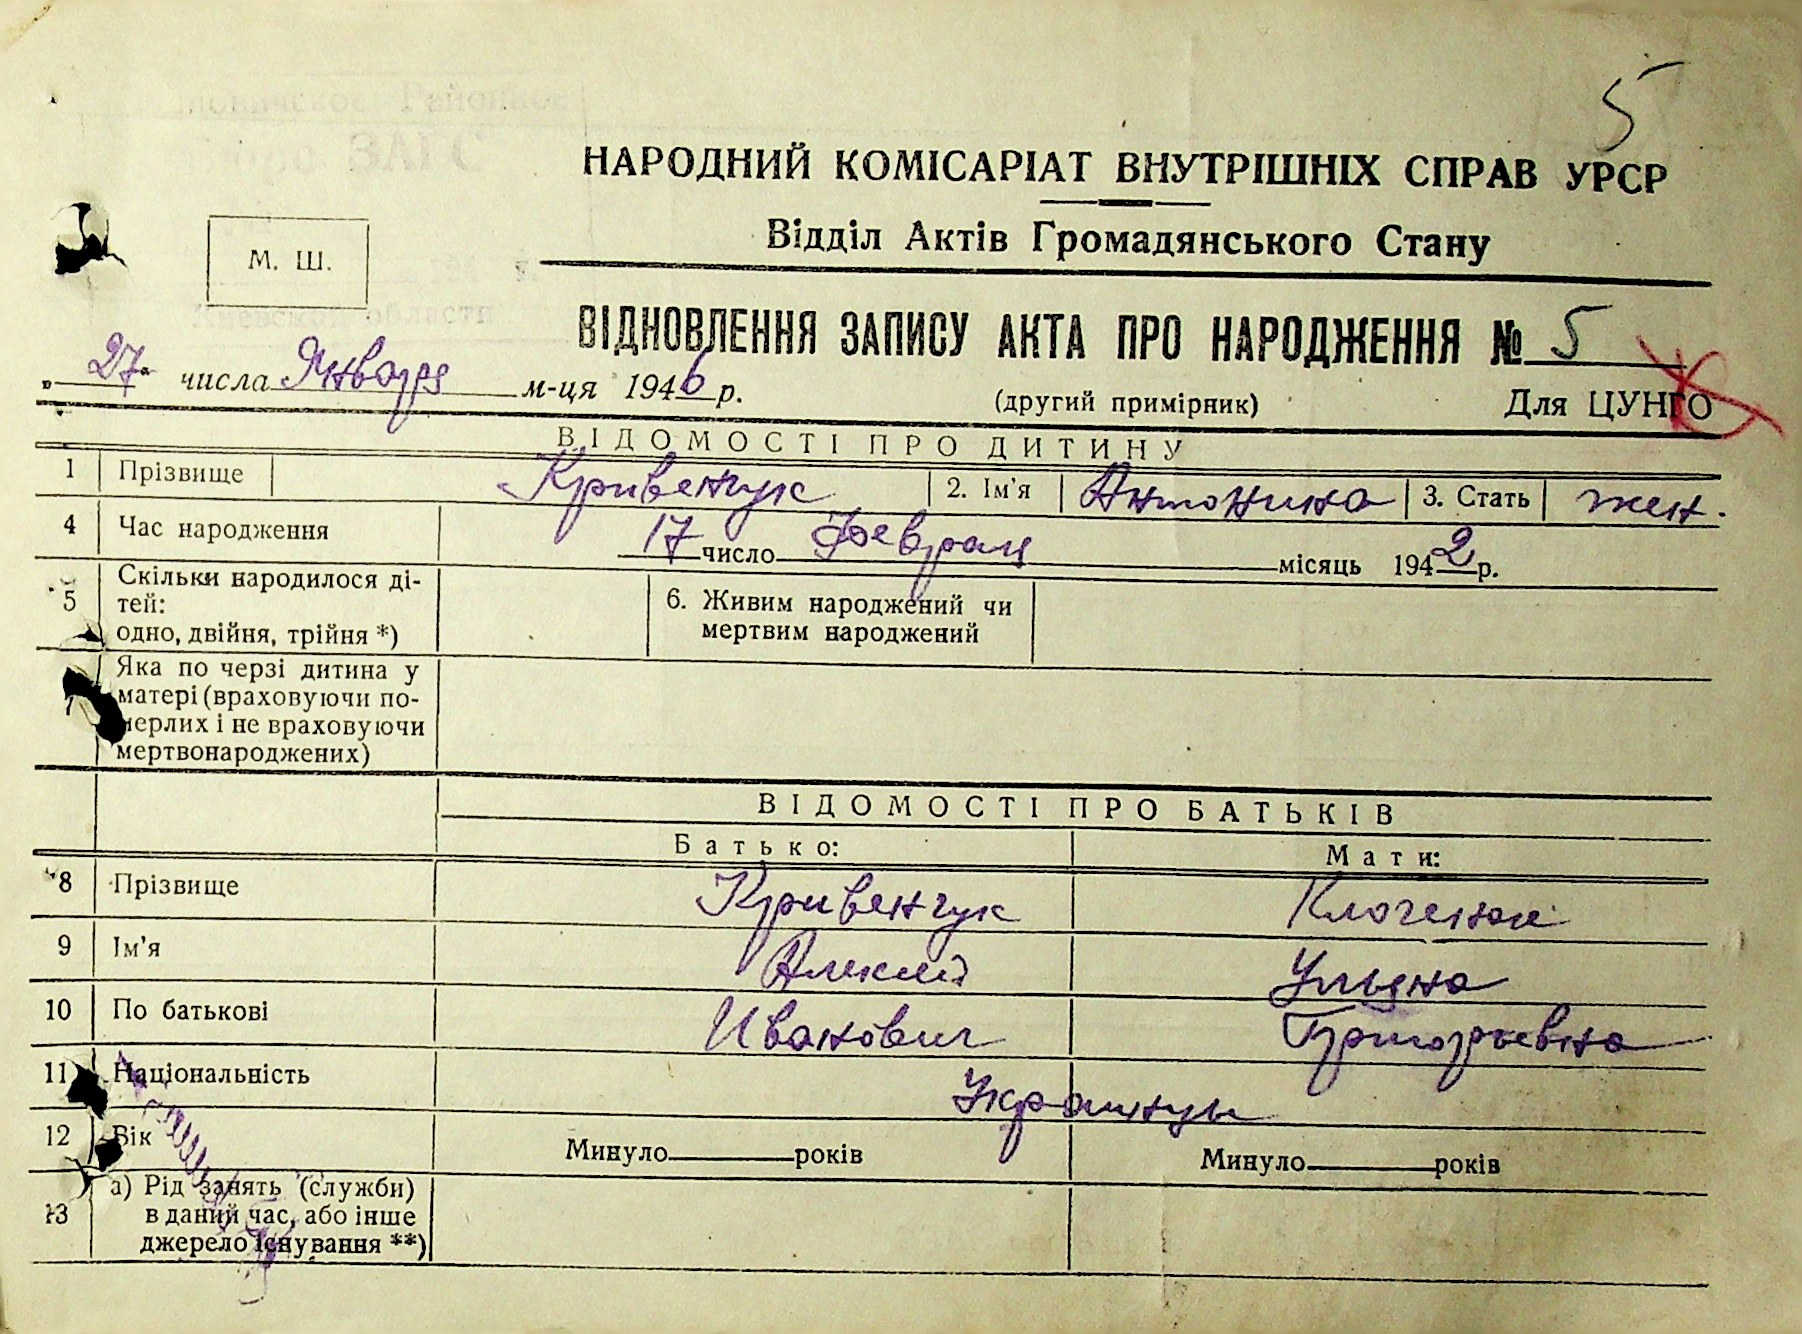 5
НАРОДНИЙ КОМІСАРІАТ ВНУТРІШНІХ СПРАВ УРСР
М. Ш.
Відділ Актів Громадянського Стану
ВІДНОВЛЕННЯ ЗАПИСУ АКТА ПРО НАРОДЖЕННЯ № 5
„27“ числа Января м-ця 1946 р.
(другий примірник) Для ЦУНГО
ВІДОМОСТІ ПРО ДИТИНУ
1 Прізвище Кривенчук 2. Ім'я Антонина 3. Стать жен.
4 Час народження 17 число Февраля місяць 1942 р.
5 Скільки народилося ді-
тей:
одно, двійня, трійня *)
6. Живим народжений чи
мертвим народжений
7 Яка по черзі дитина у
матері (враховуючи по-
мерлих і не враховуючи
мертвонароджених)
ВІДОМОСТІ ПРО БАТЬКІВ
Батько: Мати:
8 Прізвище Кривенчук
9 Ім'я Алексей Ульяна
10 По батькові Иванович Григорьевна
11 Національність Украинцы
12 Вік Минуло років Минуло років
13 а) Рід занять (служби)
в даний час, або інше
джерело існування **)